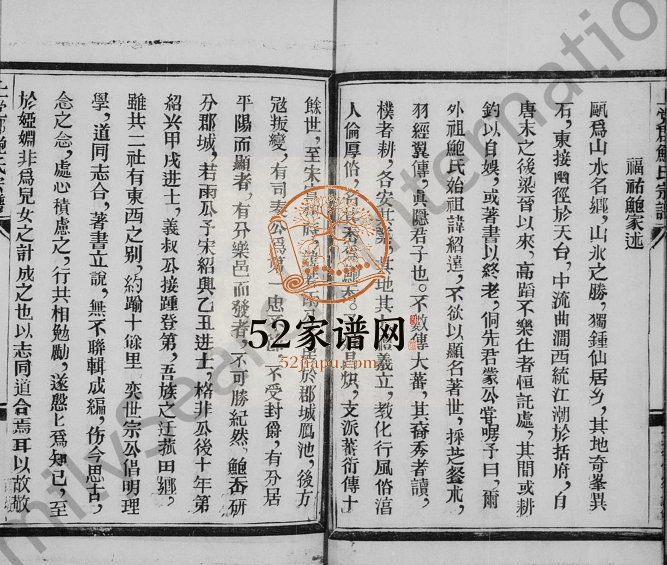 福祐鮑家述
甌爲山水名鄉，山水之勝，獨鍾仙居鄉，其地奇峯異
石，東接幽徑於天台，中流曲澗西統江潮於括府，自
唐末之後梁晉以來，高蹈不樂仕者恒託處，其間或耕
釣以自娛，或著書以終老，侗先君蒙公嘗嘱予曰，爾
外祖鮑氏始祖諱紹遠，不欲以顯名著世，採芝餐朮，
羽經翼傳，眞隱君子也。不數傳大蕃，其裔秀者讀，
樸者耕，各安其業，其地其 信義立，教化行風俗淯
人倫厚俗， 炽，支派蕃衍傳十
餘世，至宋 時， 於郡城鳫池，後方
冦叛變，有司 公爲第一忠 不受封爵，有分居
平陽而顯者，有分樂邑而發者，不可勝紀然，鮑岙研
分郡城，若雨公予宋紹興乙丑進士，格非公後十年第
紹兴甲戌进士，義叔公接踵登第，吾族之迁菰田鄉，
雖共二社有東西之别，約踰十餘里 奕世宗公倡明理
學，道同志合，著書立說，無不聯輯成編，伤今思古，
念之念，處心積慮之，行共相勉勵，遂慇上爲知己，至
於婭婣非爲兒女之計成之也以志同道合焉耳以故敬
52家谱网
52jiapu.com